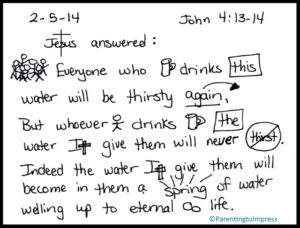 2-5-14 John 4:13-14
Jesus answered:
Everyone who drinks this
water will be thirsty again,
But whoever drinks the
water I give them will never thirst.
Indeed the water I give them will
become in them a spring of water
welling up to eternal life.
©ParentingtoImpress